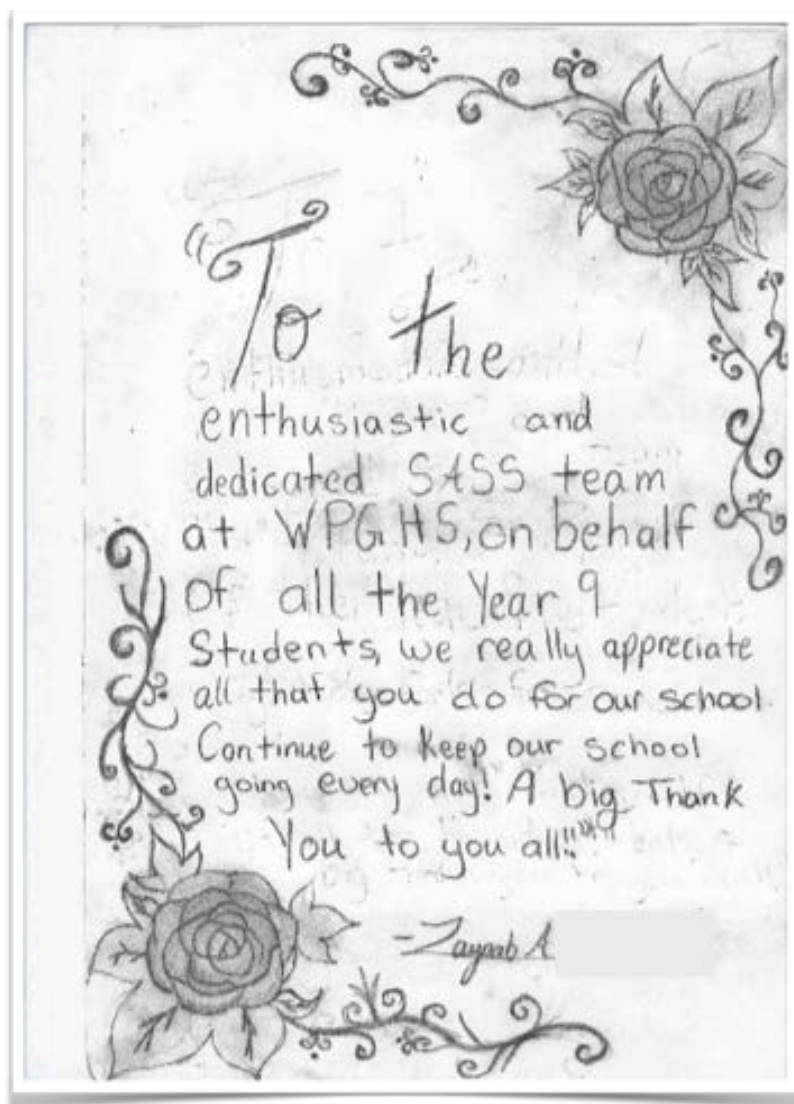 To the
enthusiastic and
dedicated SASS team
at WPGHS, on behalf
of all the Year 9
Students, we really appreciate
all that you do for our school.
Continue to keep our school
going every day! A big Thank
You to you all!!!!
-Zaynab A